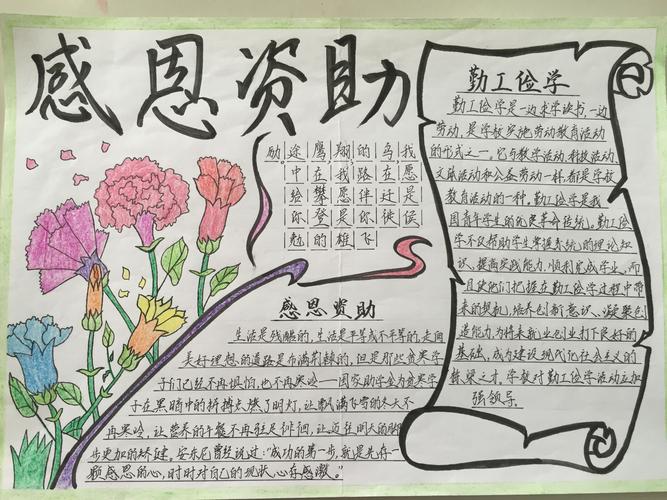 感恩资助
我愿是候
鸟在迁徙
的路伴你飞
翔我愿是雄
鹰在攀登的
途中给你勉
励
感恩资助
生活是残酷的,生活是平等或不平等的,走向
美好理想的道路是布满荆棘的,但是那些贫寒学
子们已经不再惧怕,也不再寒冷——国家助学金为贫寒学
子在黑暗中的拼搏点燃了明灯,让飘满飞雪的冬天不
再寒冷,让营养的午餐不再轻足徘徊,让迈往明天的脚
步更加的矫健。安东尼曾经说过:“成功的第一步,就是先存一
颗感恩的心,时时对自己的现状心存感激。”
勤工俭学
勤工俭学是一边求学读书,一边
劳动,是学校实施劳动教育活动
的形式之一。它与教学活动,科技活动,
文娱活动和公益劳动一样,都是学校
教育活动的一种。勤工俭学是我
国青年学生的优良革命传统。勤工俭
学不仅帮助学生掌握系统的理论知
识、提高实践能力,顺利完成学业,而
且使他们把握在勤工俭学过程中带
来的契机,培养创新意识、凝聚创
造能力,为将来就业创业打下良好的
基础,成为建设现代化社会主义的
栋梁之才。学校对勤工俭学活动应加
强领导。